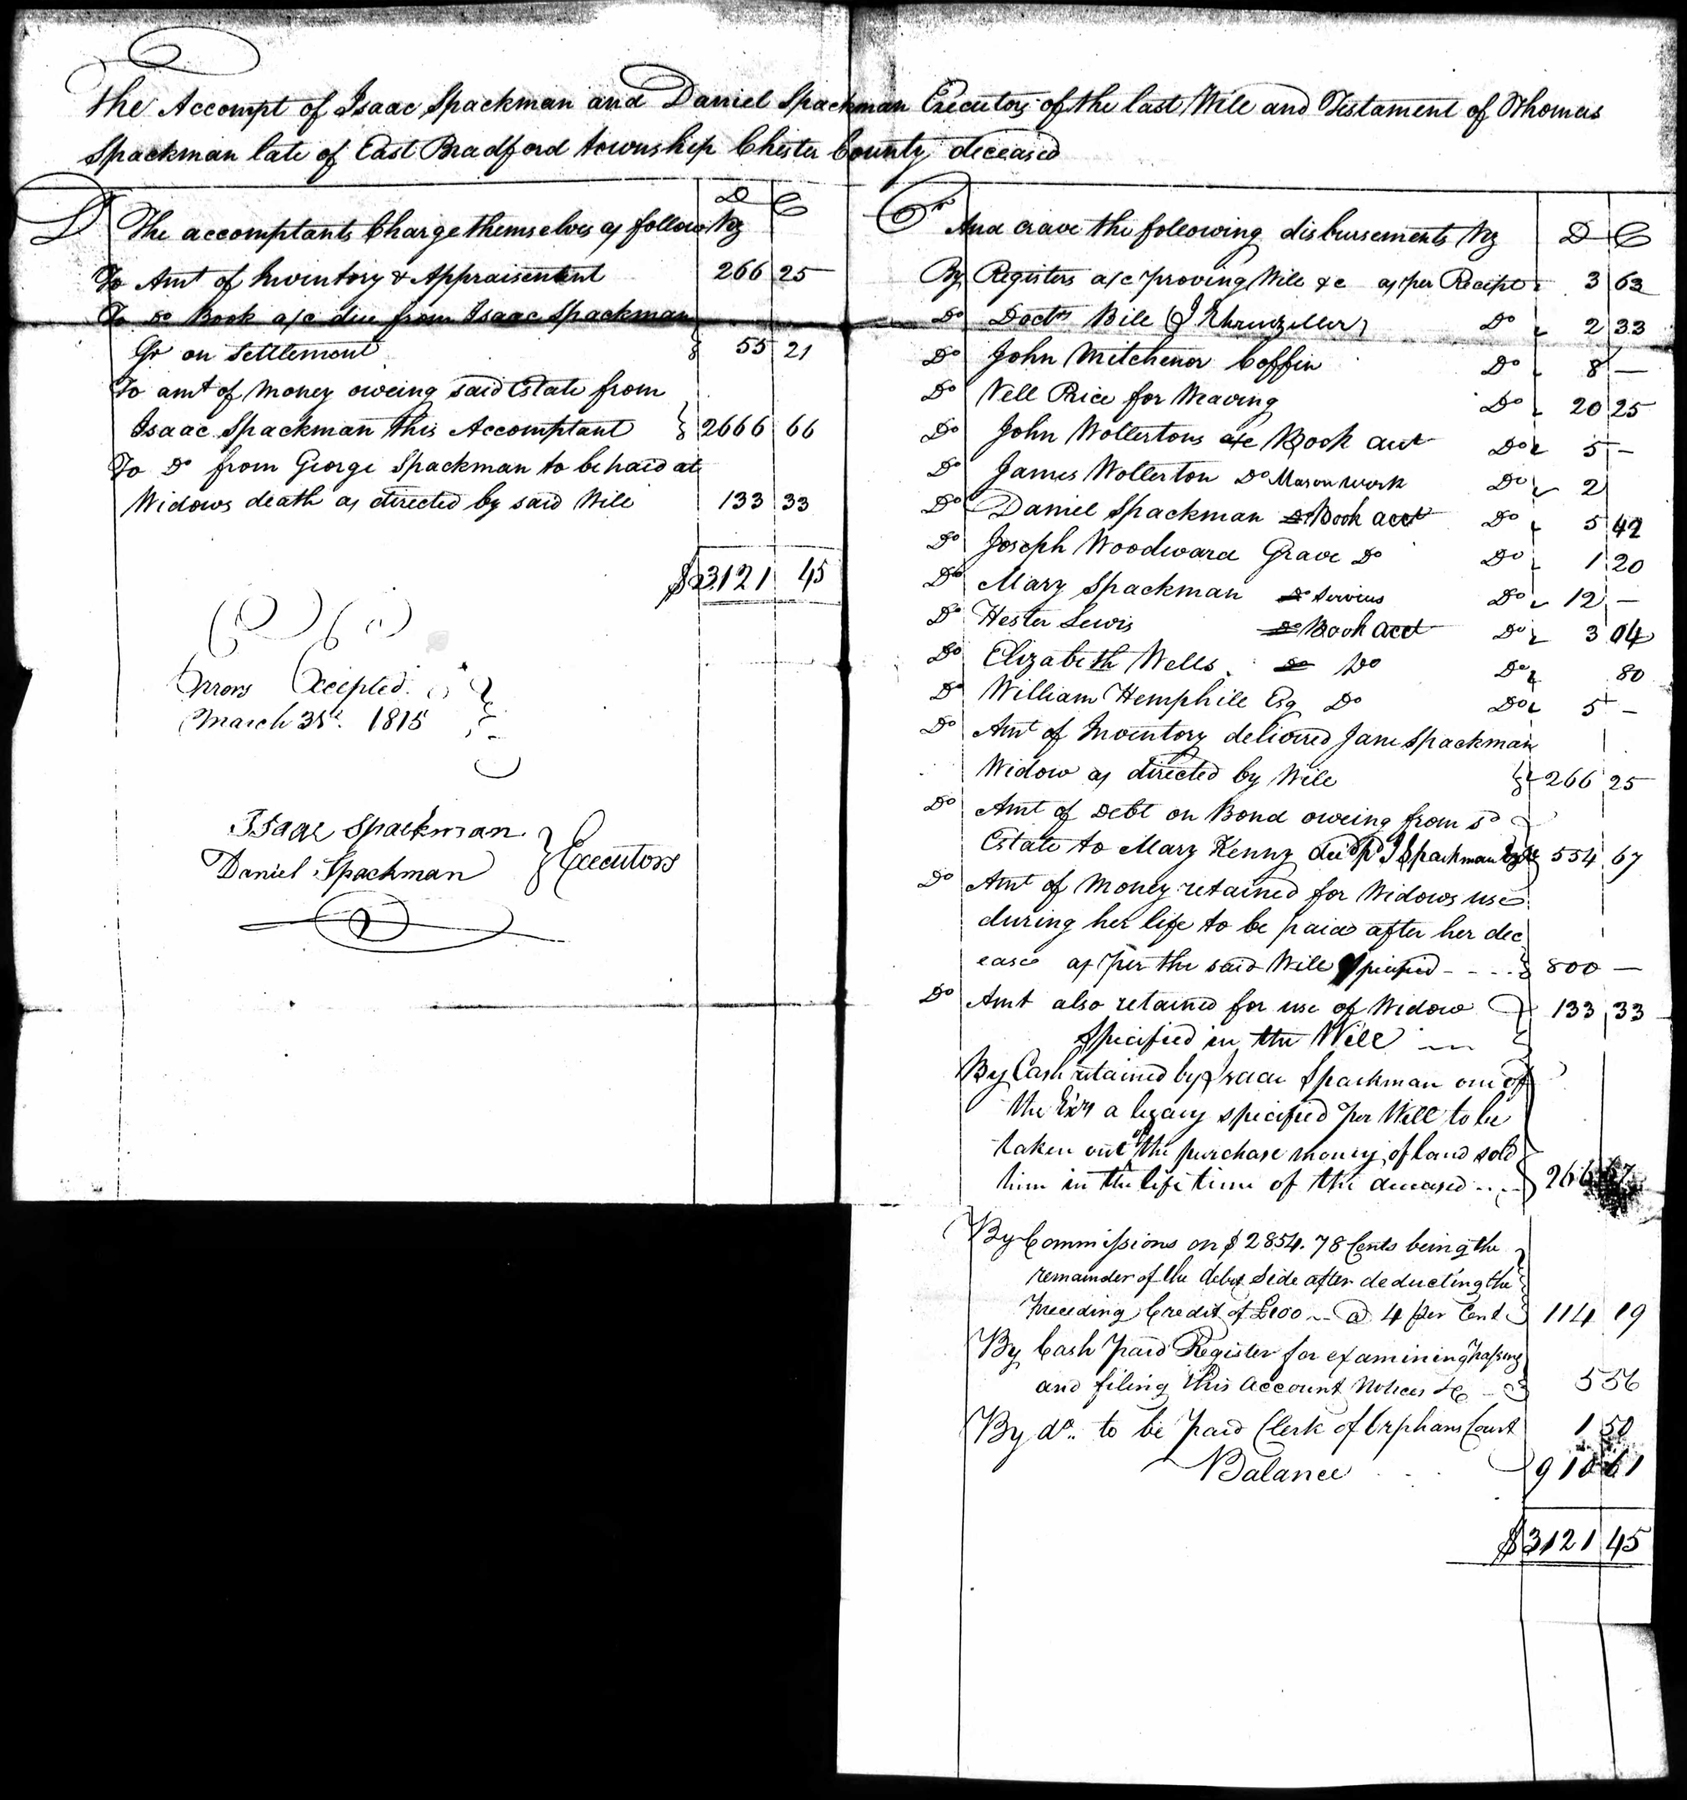 The Accompt of Isaac Spackman and Daniel Spackman Executors of the last Will and Testament of Thomas
Spackman late of East Bradford township Chester County deceased
Dr The accomptants Charge themselves as follow Viz D C
To Amt of Inventory & Appraisement 266 25
To Do Book a/c due from Isaac Spackman
Gr on settlement 55 21
To amt of Money oweing said Estate from
Isaac Spackman this Accomptant 2666 66
To Do from George Spackman to be paid at
Widows death as directed by said Will 133 33
$3121 45
Errors Excepted
March 31st. 1815
Isaac Spackman
Daniel Spackman
Executors
Cr And crave the following disbursements Viz D C
By Registers a/c proving Will &c as per Receipt 3 63
Do Doctrs Bill (J Ehrenzeller) Do 2 33
Do John Mitchener Coffin Do 8 —
Do Vell Rice for Weaving Do 20 25
Do John Wollertons Book acct Do 5 —
Do James Wollerton Do Mason work Do 2
Do Daniel Spackman Book acct Do 5 42
Do Joseph Woodward Grave Do Do 1 20
Do Mary Spackman Services Do 12 —
Do Hester Lewis Book acct Do 3 04
Do Elizabeth Wells Do Do 80
Do William Hemphill Esq Do Do 5 —
Do Amt of Inventory delivered Jane Spackman
Widow as directed by Will 266 25
Do Amt of Debt on Bond oweing from sd
Estate to Mary Kenny J Spackman 554 67
Do Amt of Money retained for Widows use
during her life to be paid after her dec
ease as per the said Will Specified - - - - 800 —
Do Amt also retained for use of Widow 133 33
Specified in the Will
By Cash retained by Isaac Spackman one of
the Exrs a legacy specified per Will to be
taken out of the purchase money of land sold
him in the life time of the deceased .... 266 67
By Commissions on $2854.78 Cents being the
remainder of the debit side after deducting the
preceding Credit of £100 -- @ 4 per Cent 114 19
By Cash paid Register for examining passing
and filing this Account Notices &c 5 56
By do.. to be paid Clerk of Orphans Court 1 50
Balance 910 61
$3121 45